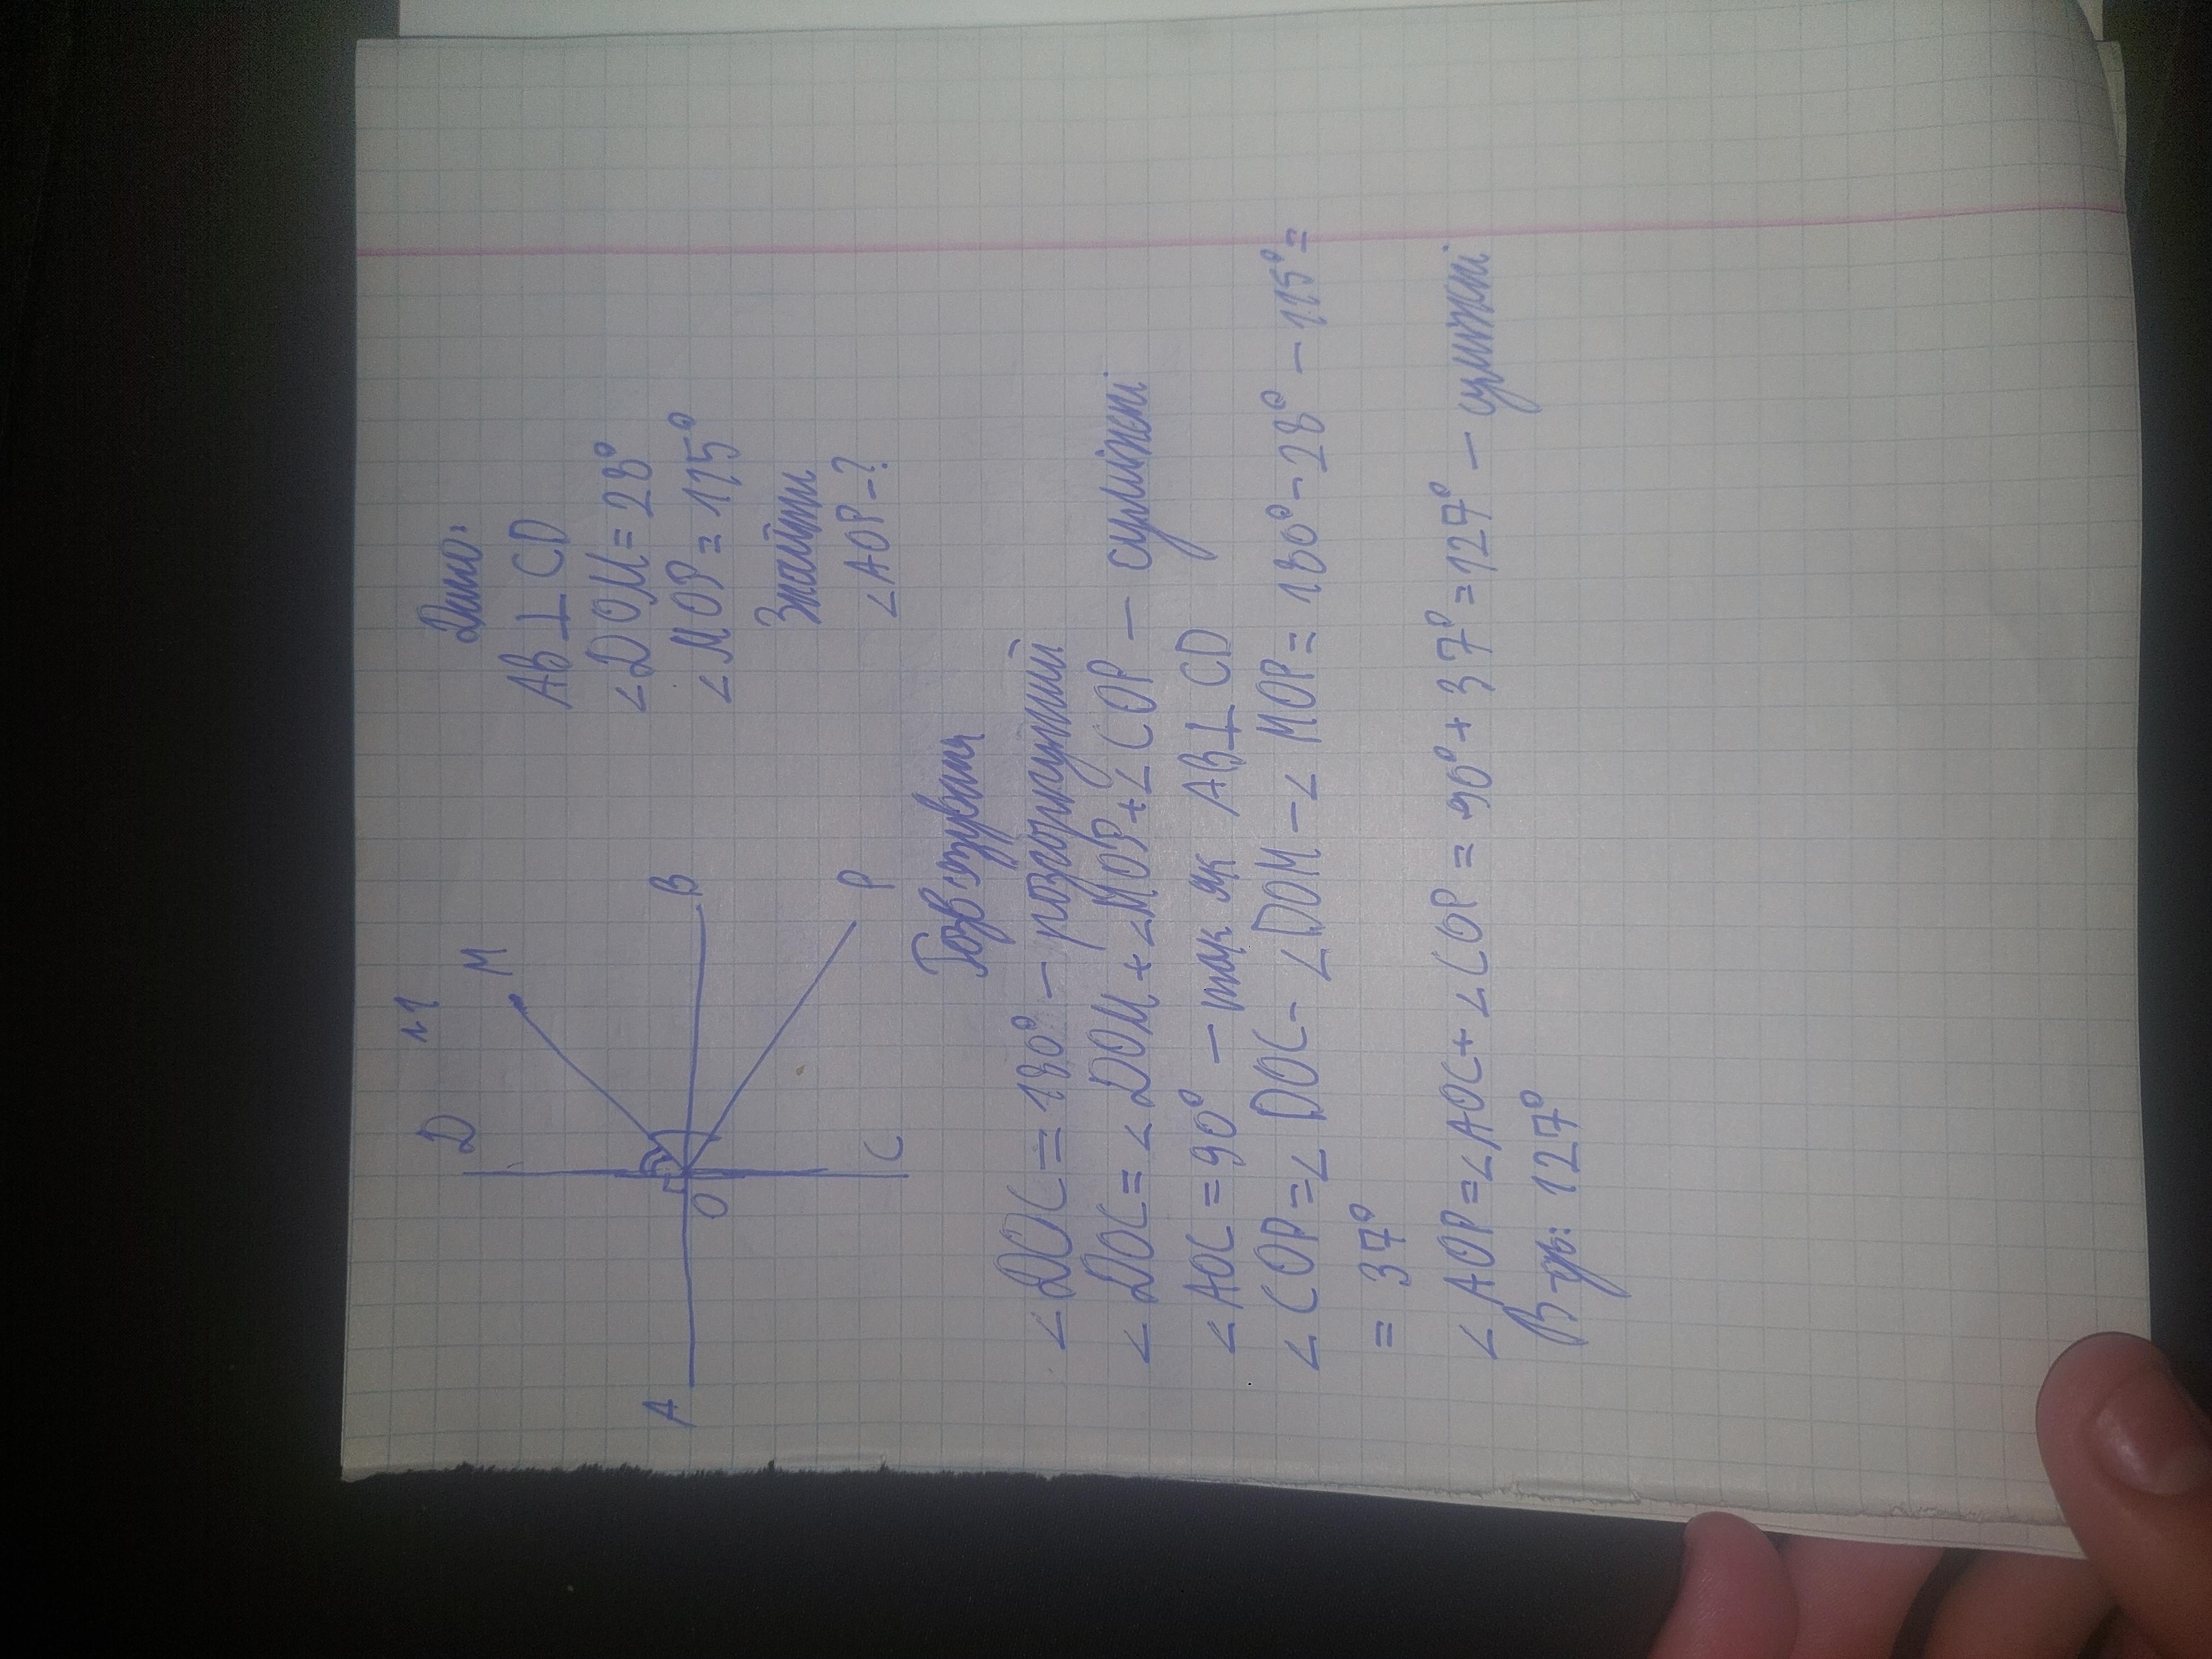 №1
D
M
A
O
B
C
P
Дано:
AB ⊥ CD
∠DOM = 28°
∠MOP = 115°
Знайти
∠AOP - ?
Розв'язування
∠DOC = 180° — розгорнутий
∠DOC = ∠DOM + ∠MOP + ∠COP — суміжні
∠AOC = 90° — так як AB ⊥ CD
∠COP = ∠DOC - ∠DOM - ∠MOP = 180° - 28° - 115° =
= 37°
∠AOP = ∠AOC + ∠COP = 90° + 37° = 127° — суміжні
В-дь: 127°